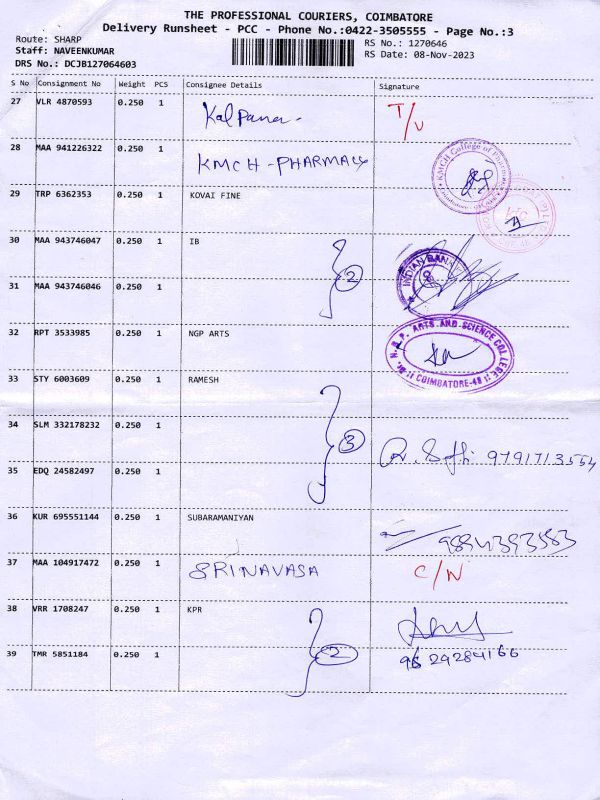 THE PROFESSIONAL COURIERS, COIMBATORE
Delivery Runsheet - PCC - Phone No.:0422-3505555 - Page No.:3
Route: SHARP
RS No.: 1270646
Staff: NAVEENKUMAR
RS Date: 08-Nov-2023
DRS No.: DCJB127064603
S No Consignment No Weight PCS Consignee Details Signature
27 VLR 4870593 0.250 1 Kalpana T/U
28 MAA 941226322 0.250 1 KMCH-PHARMACY KMCH College of Pharmacy
29 TRP 6362353 0.250 1 KOVAI FINE
30 MAA 943746047 0.250 1 IB 2 INDIAN BANK
31 MAA 943746046 0.250 1
32 RPT 3533985 0.250 1 NGP ARTS Dr. N.G.P. ARTS AND SCIENCE COLLEGE COIMBATORE-48
33 STY 6003609 0.250 1 RAMESH
34 SLM 332178232 0.250 1 3 9791713554
35 EDQ 24582497 0.250 1
36 KUR 695551144 0.250 1 SUBARAMANIYAN
37 MAA 104917472 0.250 1 SRINAVASA C/N
38 VRR 1708247 0.250 1 KPR
39 TMR 5851184 0.250 1 2 9629284166